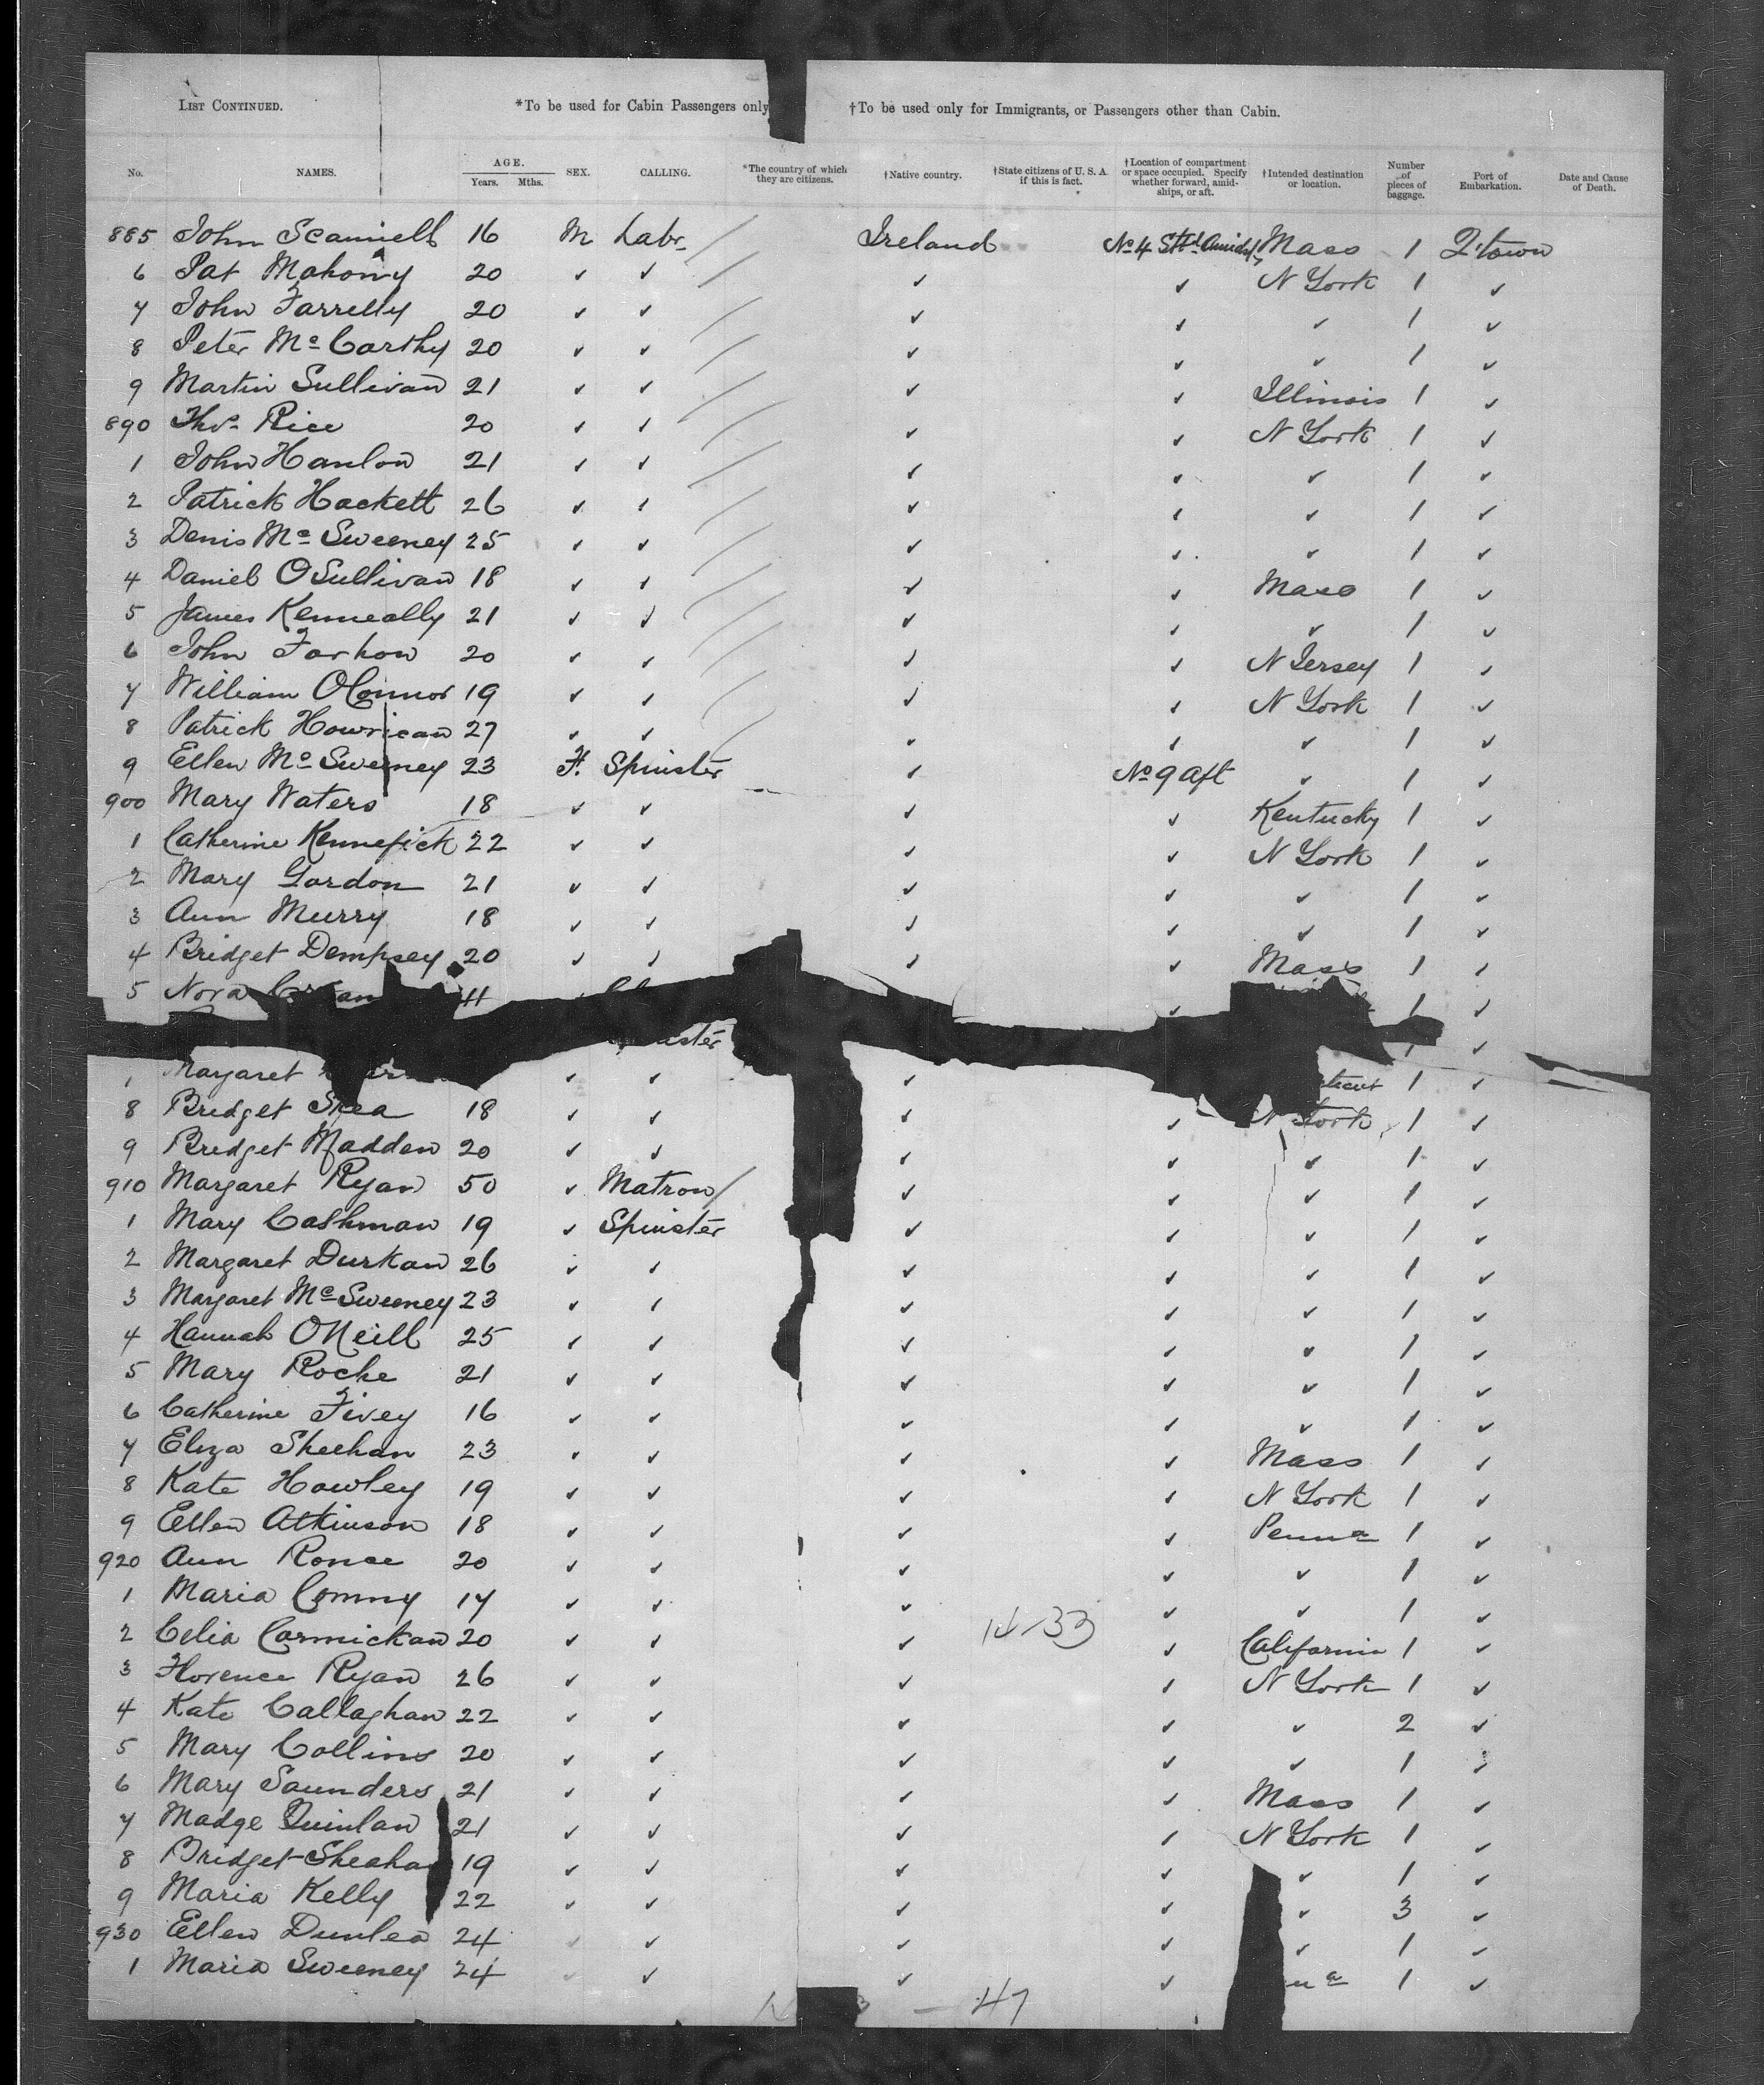 LIST CONTINUED. *To be used for Cabin Passengers only †To be used only for Immigrants, or Passengers other than Cabin.
No. NAMES. AGE. Years. Mths. SEX. CALLING. *The country of which they are citizens. †Native country. †State citizens of U. S. A. if this is fact. †Location of compartment or space occupied. Specify whether forward, amidships, or aft. †Intended destination or location. Number of pieces of baggage. Port of Embarkation. Date and Cause of Death.
885 John Scannell 16 M Labr Ireland No 4 Sttd Amids Mass 1 Q'town
6 Pat Mahony 20 ✓ ✓ ✓ ✓ N York 1 ✓
7 John Farrelly 20 ✓ ✓ ✓ ✓ ✓ 1 ✓
8 Peter Mc Carthy 20 ✓ ✓ ✓ ✓ ✓ 1 ✓
9 Martin Sullivan 21 ✓ ✓ ✓ ✓ Illinois 1 ✓
890 Thos Rice 20 ✓ ✓ ✓ ✓ N York 1 ✓
1 John Hanlon 21 ✓ ✓ ✓ ✓ ✓ 1 ✓
2 Patrick Hackett 26 ✓ ✓ ✓ ✓ ✓ 1 ✓
3 Denis Mc Sweeney 25 ✓ ✓ ✓ ✓ ✓ 1 ✓
4 Daniel OSullivan 18 ✓ ✓ ✓ ✓ Mass 1 ✓
5 James Kenneally 21 ✓ ✓ ✓ ✓ ✓ 1 ✓
6 John 20 ✓ ✓ ✓ ✓ N Jersey 1 ✓
7 William OConnor 19 ✓ ✓ ✓ ✓ N York 1 ✓
8 Patrick Hourican 27 ✓ ✓ ✓ ✓ ✓ 1 ✓
9 Ellen Mc Sweeney 23 F. Spinster ✓ No 9 Aft ✓ 1 ✓
900 Mary Waters 18 ✓ ✓ ✓ ✓ Kentucky 1 ✓
1 Catherine Kennefick 22 ✓ ✓ ✓ ✓ N York 1 ✓
2 Mary Gordon 21 ✓ ✓ ✓ ✓ ✓ 1 ✓
3 Ann Murry 18 ✓ ✓ ✓ ✓ ✓ 1 ✓
4 Bridget Dempsey 20 ✓ ✓ ✓ ✓ Mass 1 ✓
5 Nora 11 ✓ ✓ 1 ✓
1 ✓
Margaret ✓ ✓ ✓ 1 ✓
8 Bridget Shea 18 ✓ ✓ ✓ ✓ N York 1 ✓
9 Bridget Madden 20 ✓ ✓ ✓ ✓ ✓ 1 ✓
910 Margaret Ryan 50 ✓ Matron ✓ ✓ ✓ 1 ✓
1 Mary Cashman 19 ✓ Spinster ✓ ✓ ✓ 1 ✓
2 Margaret Durkan 26 ✓ ✓ ✓ ✓ ✓ 1 ✓
3 Margaret McSweeney 23 ✓ ✓ ✓ ✓ ✓ 1 ✓
4 Hannah ONeill 25 ✓ ✓ ✓ ✓ ✓ 1 ✓
5 Mary Roche 21 ✓ ✓ ✓ ✓ ✓ 1 ✓
6 Catherine Fivey 16 ✓ ✓ ✓ ✓ ✓ 1 ✓
7 Eliza Sheehan 23 ✓ ✓ ✓ ✓ Mass 1 ✓
8 Kate Howley 19 ✓ ✓ ✓ ✓ N York 1 ✓
9 Ellen Atkinson 18 ✓ ✓ ✓ ✓ Penna 1 ✓
920 Ann 20 ✓ ✓ ✓ ✓ ✓ 1 ✓
1 Maria 17 ✓ ✓ ✓ ✓ ✓ 1 ✓
2 Celia Cormickan 20 ✓ ✓ ✓ ✓ California 1 ✓
3 Florence Ryan 26 ✓ ✓ ✓ ✓ N York 1 ✓
4 Kate Callaghan 22 ✓ ✓ ✓ ✓ ✓ 2 ✓
5 Mary Collins 20 ✓ ✓ ✓ ✓ ✓ 1 ✓
6 Mary Saunders 21 ✓ ✓ ✓ ✓ Mass 1 ✓
7 Madge Quinlan 21 ✓ ✓ ✓ ✓ N York 1 ✓
8 Bridget Sheaha 19 ✓ ✓ ✓ ✓ ✓ 1 ✓
9 Maria Kelly 22 ✓ ✓ ✓ ✓ ✓ 3 ✓
930 Ellen Dunlea 24 ✓ ✓ ✓ ✓ ✓ 1 ✓
1 Maria Sweeney 24 ✓ ✓ ✓ ✓ 1 ✓
47